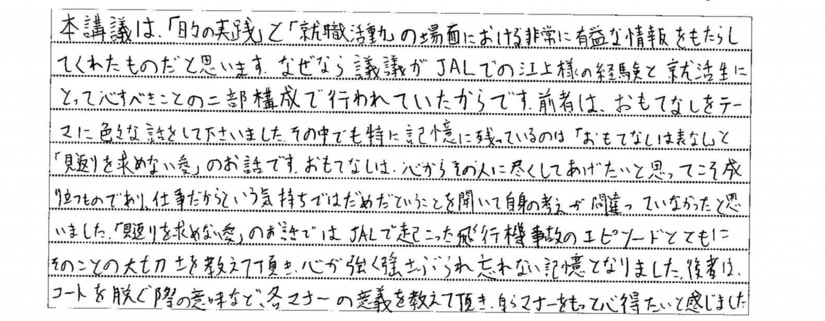 本講義は、「日々の実践」と「就職活動」の場面における非常に有益な情報をもたらし
てくれたものだと思います。なぜなら議議がJALでの江上様の経験と就活生に
とって心すべきことの二部構成で行われていたからです。前者は、おもてなしをテー
マに色々な話をして下さいました。その中でも特に記憶に残っているのは「おもてなしは表なし」と
「見返りを求めない愛」のお話です。おもてなしは、心からその人に尽くしてあげたいと思ってこそ成
り立つものであり、仕事だからという気持ちではだめだということを聞いて自身の考えが間違っていなかったと思
いました。「見返りを求めない愛」のお話ではJALで起こった飛行機事故のエピソードとともに
そのことの大切さを教えて頂き、心が強く強さぶられ忘れない記憶となりました。後者は、
コートを脱ぐ際の意味など、各マナーの意義を教えて頂き、自らマナーをもって心得たいと感じました